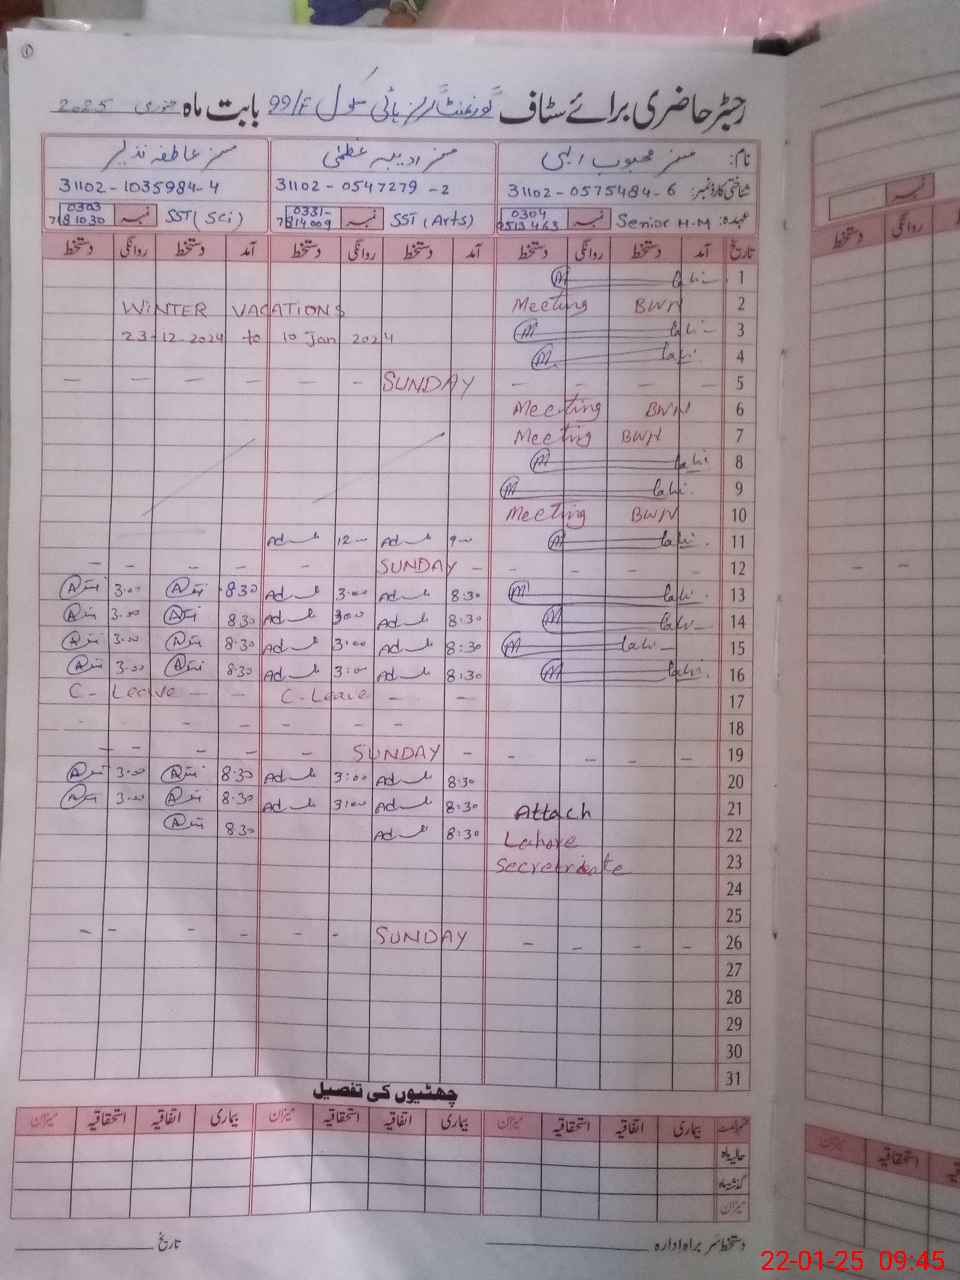 ①
رجسٹر حاضری برائے سٹاف گورنمنٹ گرلز ہائی سکول 99/F بابت ماہ جنوری 2025
نام: مسز محبوب الہی مسز ادیبہ عظمٰی مسز عاطفہ نذیر
شناختی کارڈ نمبر: 31102-0575484-6 31102-0547279-2 31102-1035984-4
عہدہ: Senior H-M نمبر 0304 SST (Arts) نمبر 0331- 7814009 SST (Sci) نمبر 0303 7181030
تاریخ آمد دستخط روانگی دستخط آمد دستخط روانگی دستخط آمد دستخط روانگی دستخط
1
2 Meeting BWN WINTER VACATIONS
3 23-12-2024 to 10 Jan 2024
4
5 - - - - SUNDAY - - - - - -
6 Meeting BWN
7 Meeting BWN
8
9
10 Meeting BWN
11 9-00 12-00
12 SUNDAY - - - - - -
13 8:30 3:00 8:30 3:00
14 8:30 3:00 8:30 3:00
15 8:30 3:00 8:30 3:00
16 8:30 3:00 8:30 3:00
17 C. Leave - - C- Leave - -
18 - - - - - - -
19 - - - - SUNDAY - - - - - -
20 8:30 3:00 8:30 3:00
21 Attach 8:30 3:00 8:30 3:00
22 Lahore 8:30 8:30
23 Secretriate
24
25
26 - - - - SUNDAY - - - - - -
27
28
29
30
31
چھٹیوں کی تفصیل
بیماری اتفاقیہ استحقاقیہ میزان بیماری اتفاقیہ استحقاقیہ میزان بیماری اتفاقیہ استحقاقیہ میزان
حالیہ ماہ
گذشتہ ماہ
میزان
دستخط سربراہ ادارہ تاریخ
دستخط روانگی
نمبر
میزان استحقاقیہ
22-01-25 09:45